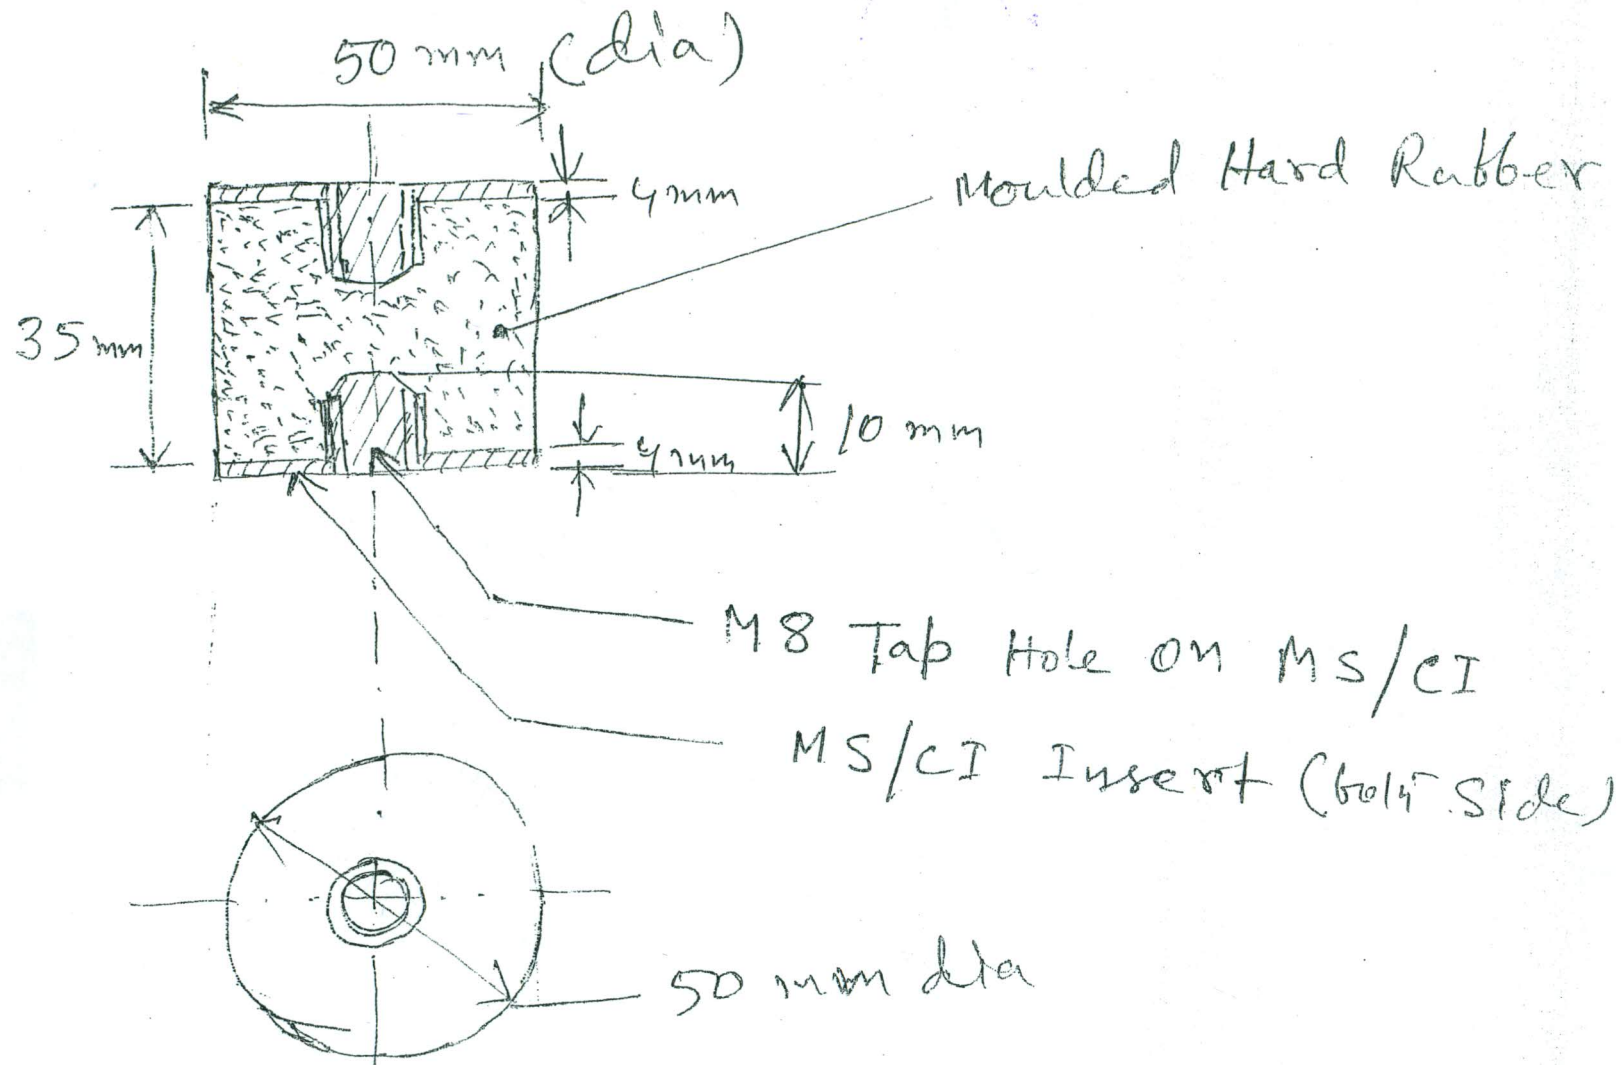 50 mm (dia)
4mm
Moulded Hard Rubber
35mm
10 mm
4mm
M8 Tap Hole on MS/CI
MS/CI Insert (both Side)
50 mm dia